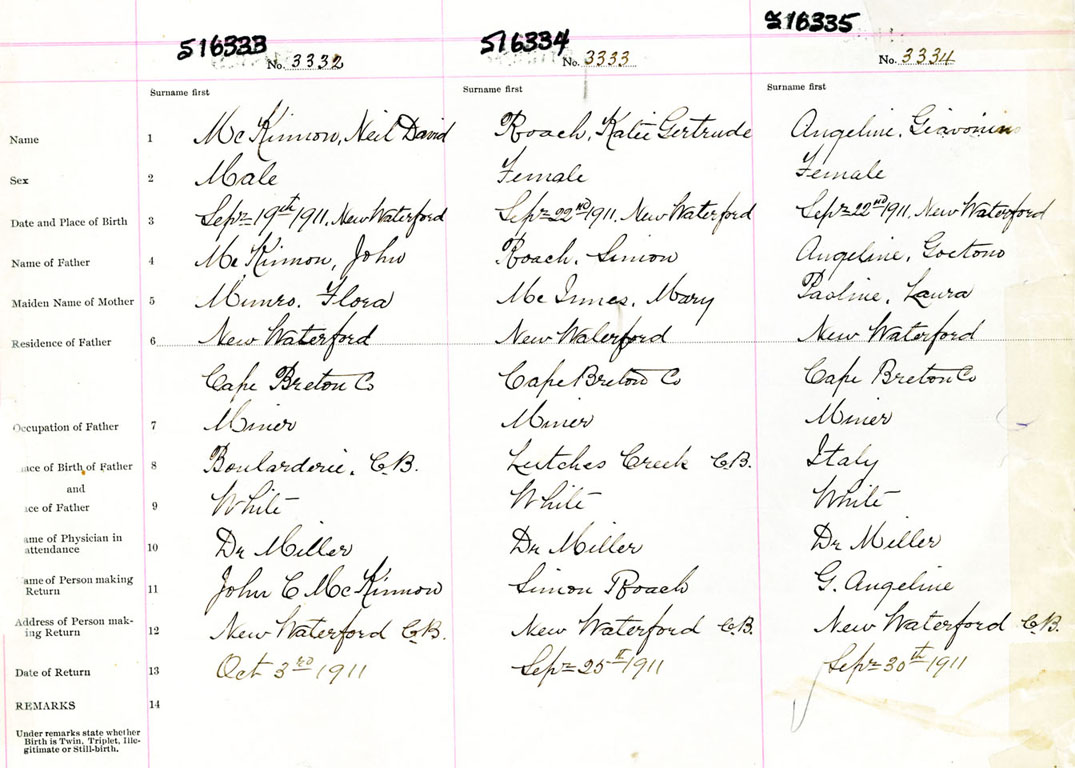 516333 516334 516335
No. 3332 No. 3333 No. 3334
Surname first Surname first Surname first
Name 1 McKinnon, Neil David Roach, Katie Gertrude Angeline, Giavonina
Sex 2 Male Female Female
Date and Place of Birth 3 Sept 19th 1911, New Waterford Sept 22nd 1911, New Waterford Sept 22nd 1911, New Waterford
Name of Father 4 McKinnon, John Roach, Simon Angeline, Goetono
Maiden Name of Mother 5 Munro, Flora McInnes, Mary Paoline, Laura
Residence of Father 6 New Waterford New Waterford New Waterford
Cape Breton Co Cape Breton Co Cape Breton Co
Occupation of Father 7 Miner Miner Miner
ace of Birth of Father 8 Boularderie, C.B. Leitches Creek C.B. Italy
and
ace of Father 9 White White White
ame of Physician in
attendance 10 Dr Miller Dr Miller Dr Miller
ame of Person making
Return 11 John C McKinnon Simon Roach G. Angeline
Address of Person mak-
ing Return 12 New Waterford C.B. New Waterford C.B. New Waterford C.B.
Date of Return 13 Oct 3rd 1911 Sept 25th 1911 Sept 30th 1911
REMARKS 14
Under remarks state whether
Birth is Twin, Triplet, Ille-
gitimate or Still-birth.